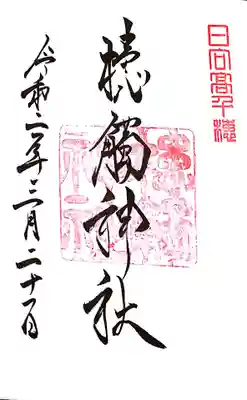 日向髙千穗
槵觸神社
令和二年三月二十一日